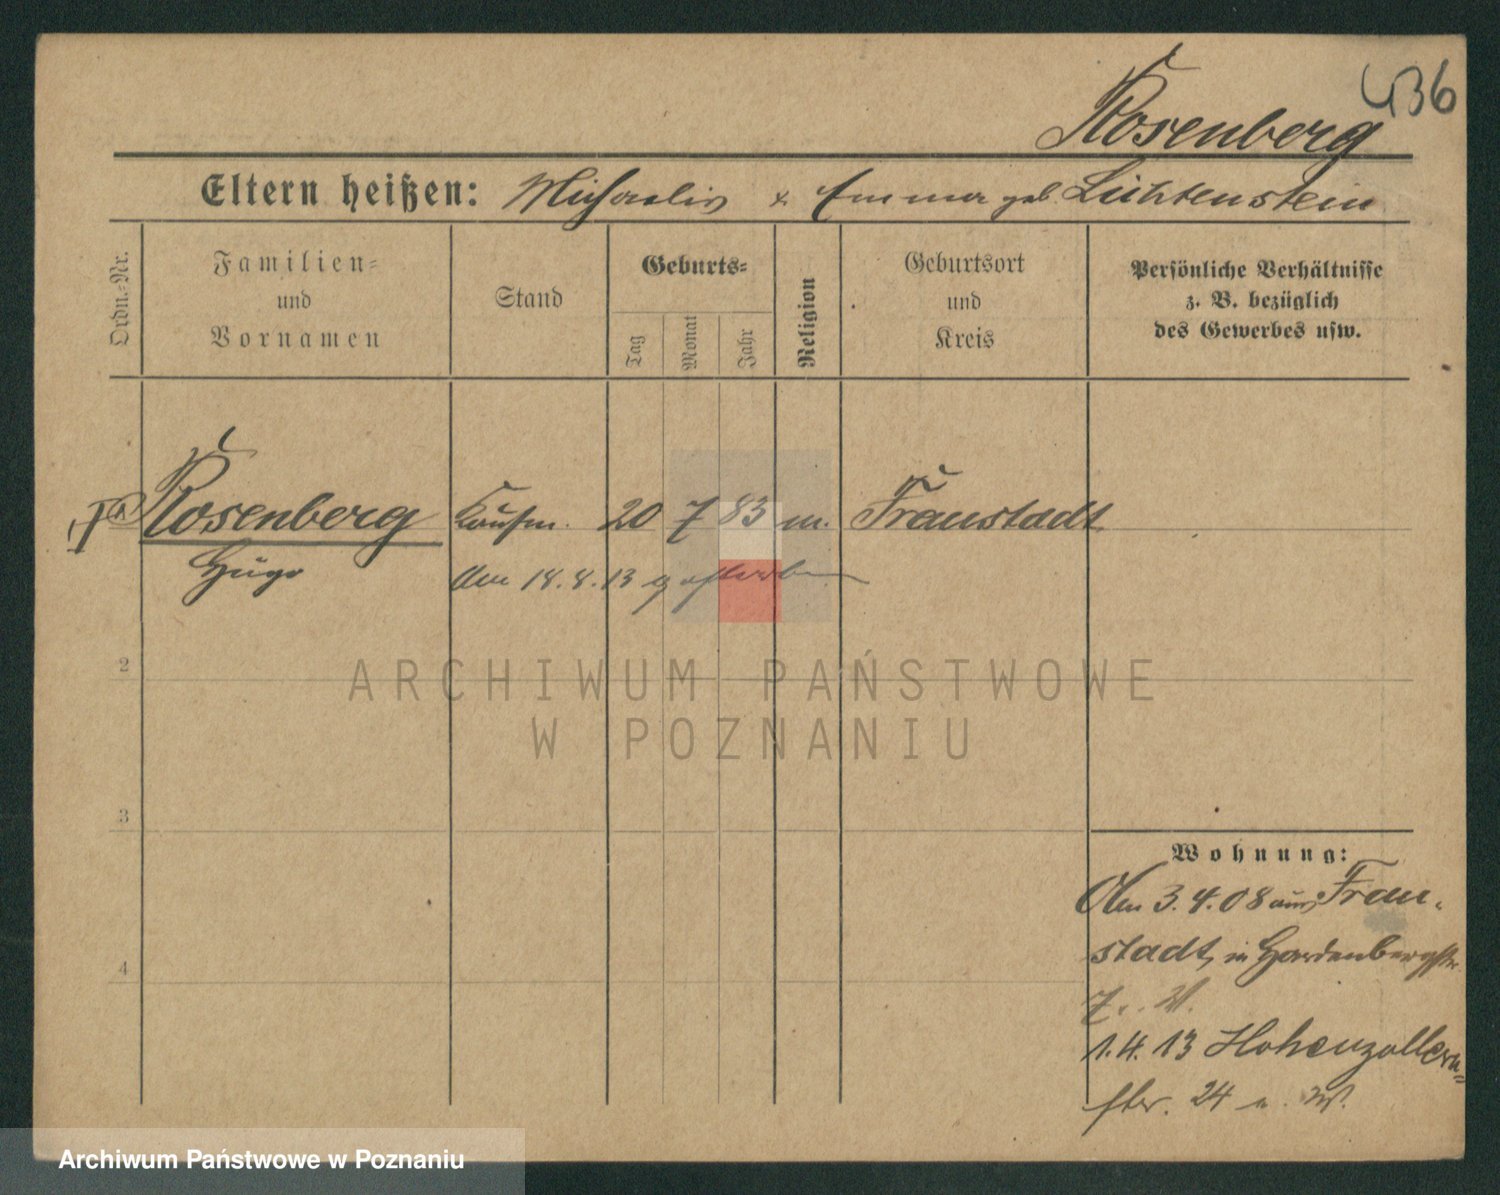 436
Rosenberg
Eltern heißen: Michaelis & Emma geb. Lichtenstein
Ordn.-Nr.
Familien-
und
Vornamen
Stand
Geburts-
Tag
Monat
Jahr
Religion
Geburtsort
und
Kreis
Persönliche Verhältnisse
z. B. bezüglich
des Gewerbes usw.
Rosenberg Kaufm. 20 7 83 m. Fraustadt
Hugo Am 18.8.13 gestorben
2
ARCHIWUM PAŃSTWOWE
W POZNANIU
3
Wohnung:
Am 3.4.08 aus Frau-
stadt, in Hardenbergstr
7
4
1.4.13 Hohenzollern-
str. 24
Archiwum Państwowe w Poznaniu